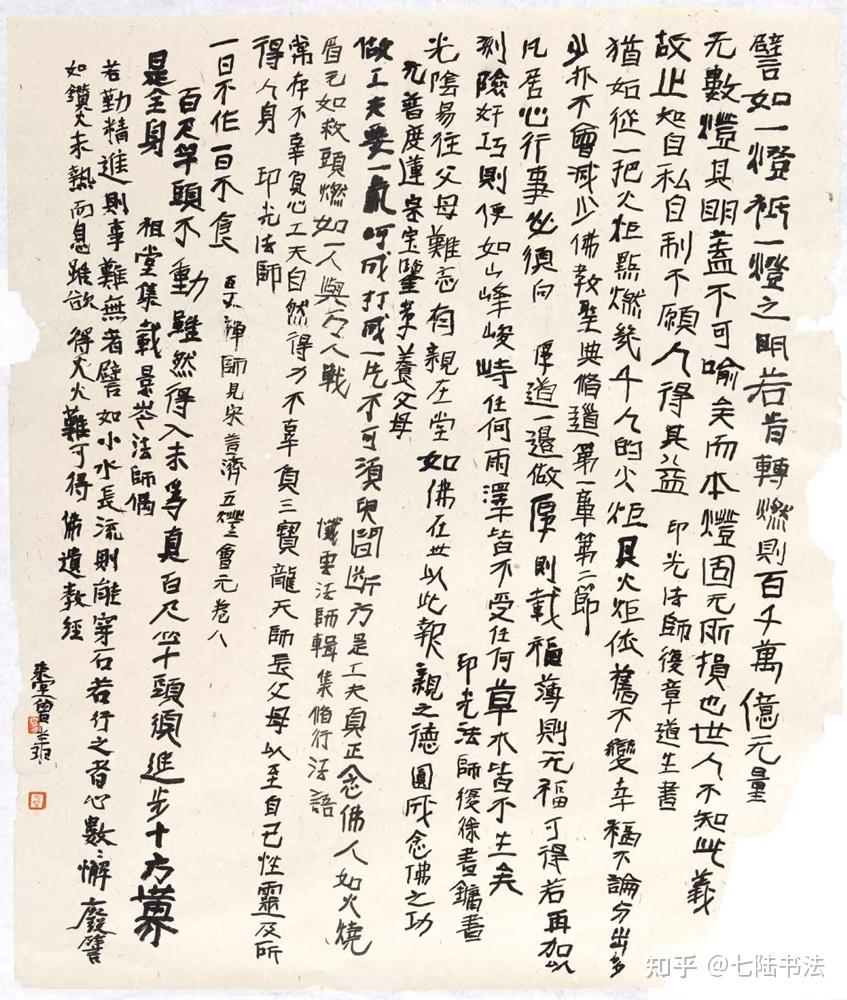 譬如一燈祇一燈之明若肯轉燃則百千萬億无量
无數燈其明蓋不可喻矣而本燈固无所損也世人不知此義
故止知自私自利不願人得其益 印光法師復章道生書
猶如從一把火炬點燃幾千人的火炬其火炬依舊不變幸福不論分出多
少亦不會減少佛教聖典脩道第一章第二節
凡居心行事必須向 厚道一邊做厚則載福薄則无福可得若再加以
刻險奸巧則便如山峰峻峙任何雨澤皆不受任何草木皆不生矣
印光法師復徐書鏞書
光陰易往父母難忘有親在堂如佛在世以此報親之德圓成念佛之功
元普度蓮宗宝鑒孝養父母
做工夫要一氣呵成打成一片不可須臾間斷方是工夫真正念佛人如火燒
眉毛如救頭燃如一人與万人戰
懺雲法師輯集脩行法語
常存不辜負心工夫自然得力不辜負三寶龍天師長父母以至自己性靈及所
得人身 印光法師
一日不作一日不食 百丈禪師見宋普濟五燈會元卷八
百尺竿頭不動 雖然得入未為真百尺竿頭須進步十方世界
是全身 祖堂集載景岑法師偈
若勤精進則事難無者譬如小水長流則能穿石若行之者心數數懈廢譬
如鑽火未熱而息雖欲得火火難可得 佛遺教經
知乎 @七陆书法